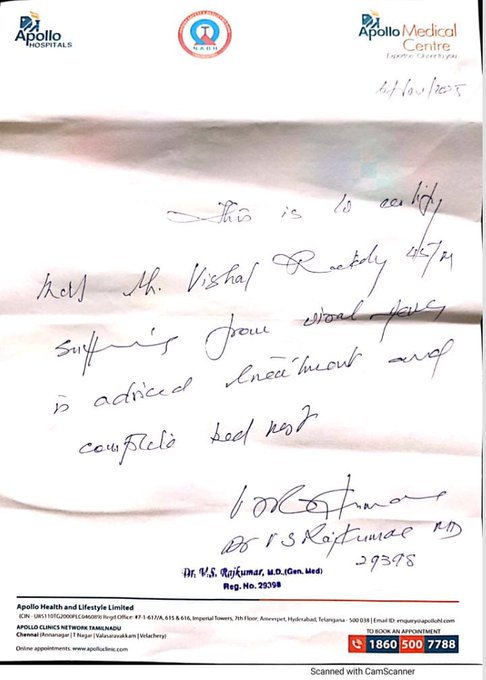 Apollo
HOSPITALS
NABH
Apollo Medical
Centre
Expertise. Closer to you
This is to certify
that Mr. Vishal Reddy 45/M
suffering from viral fever
is adviced treatment and
complete bed rest
Dr V S Rajkumar MD
29398
Dr. V.S. Rajkumar, M.D.(Gen. Med)
Reg. No. 29398
Apollo Health and Lifestyle Limited
(CIN - U85110TG2000PLC046089) Regd Office: #7-1-617/A, 615 & 616, Imperial Towers, 7th Floor, Ameerpet, Hyderabad, Telangana - 500 038 | Email ID: enquiry@apollohl.com
APOLLO CLINICS NETWORK TAMILNADU
Chennai (Annanagar | T Nagar | Valasaravakkam | Velachery)
Online appointments: www.apolloclinic.com
TO BOOK AN APPOINTMENT
1860 500 7788
Scanned with CamScanner